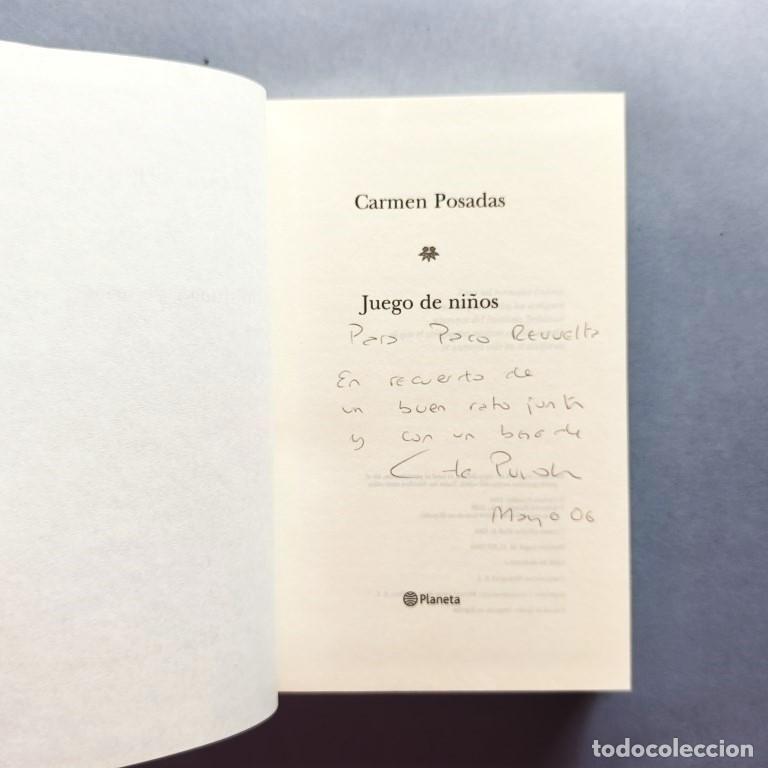 Carmen Posadas
Juego de niños
Para Paco Revuelta
En recuerdo de
un buen rato juntos
y con un beso de
Mayo 06
Planeta
todocoleccion